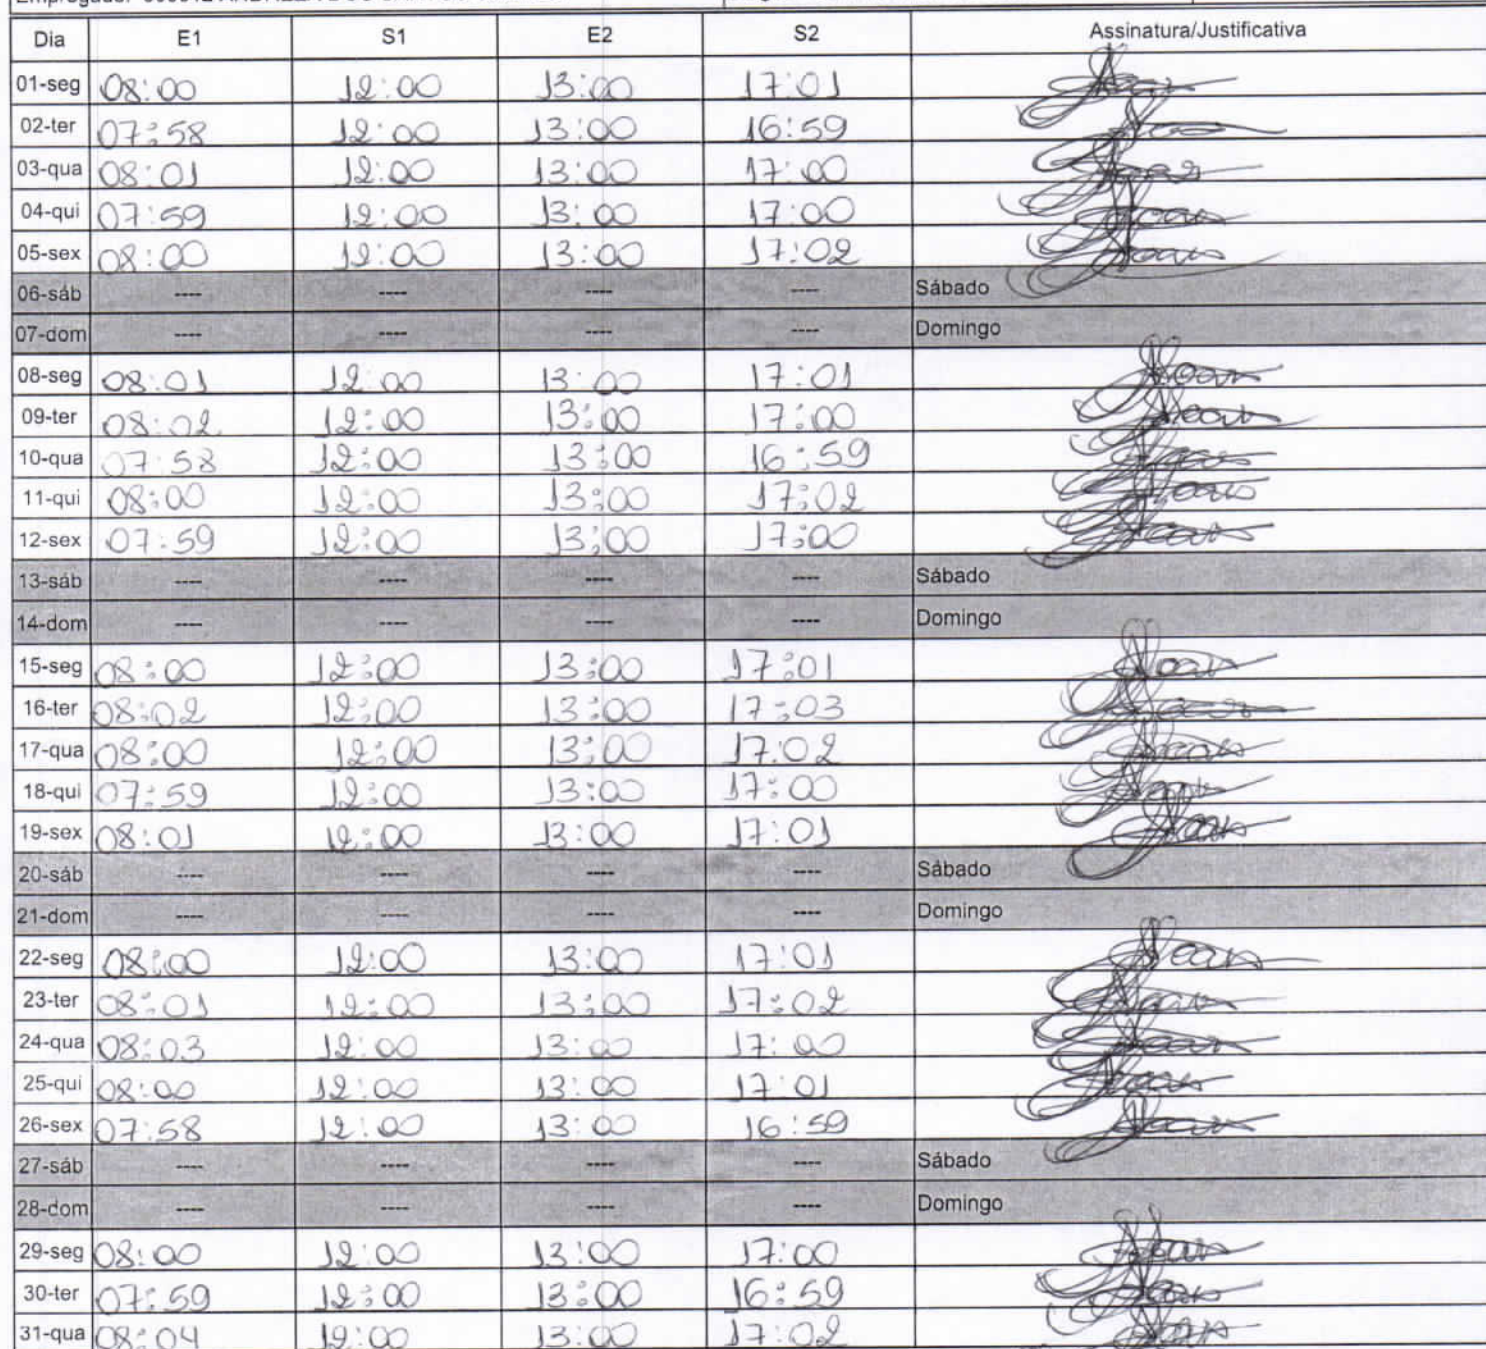 Dia E1 S1 E2 S2 Assinatura/Justificativa
01-seg 08:00 12:00 13:00 17:01
02-ter 07:58 12:00 13:00 16:59
03-qua 08:01 12:00 13:00 17:00
04-qui 07:59 12:00 13:00 17:00
05-sex 08:00 12:00 13:00 17:02
06-sáb ---- ---- ---- ---- Sábado
07-dom ---- ---- ---- ---- Domingo
08-seg 08:01 12:00 13:00 17:01
09-ter 08:02 12:00 13:00 17:00
10-qua 07:58 12:00 13:00 16:59
11-qui 08:00 12:00 13:00 17:02
12-sex 07:59 12:00 13:00 17:00
13-sáb ---- ---- ---- ---- Sábado
14-dom ---- ---- ---- ---- Domingo
15-seg 08:00 12:00 13:00 17:01
16-ter 08:02 12:00 13:00 17:03
17-qua 08:00 12:00 13:00 17:02
18-qui 07:59 12:00 13:00 17:00
19-sex 08:01 12:00 13:00 17:01
20-sáb ---- ---- ---- ---- Sábado
21-dom ---- ---- ---- ---- Domingo
22-seg 08:00 12:00 13:00 17:01
23-ter 08:01 12:00 13:00 17:02
24-qua 08:03 12:00 13:00 17:00
25-qui 08:00 12:00 13:00 17:01
26-sex 07:58 12:00 13:00 16:59
27-sáb ---- ---- ---- ---- Sábado
28-dom ---- ---- ---- ---- Domingo
29-seg 08:00 12:00 13:00 17:00
30-ter 07:59 12:00 13:00 16:59
31-qua 08:04 12:00 13:00 17:02